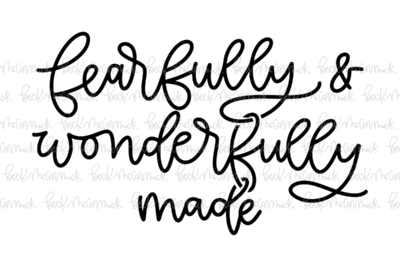 fearfully &
wonderfully
made